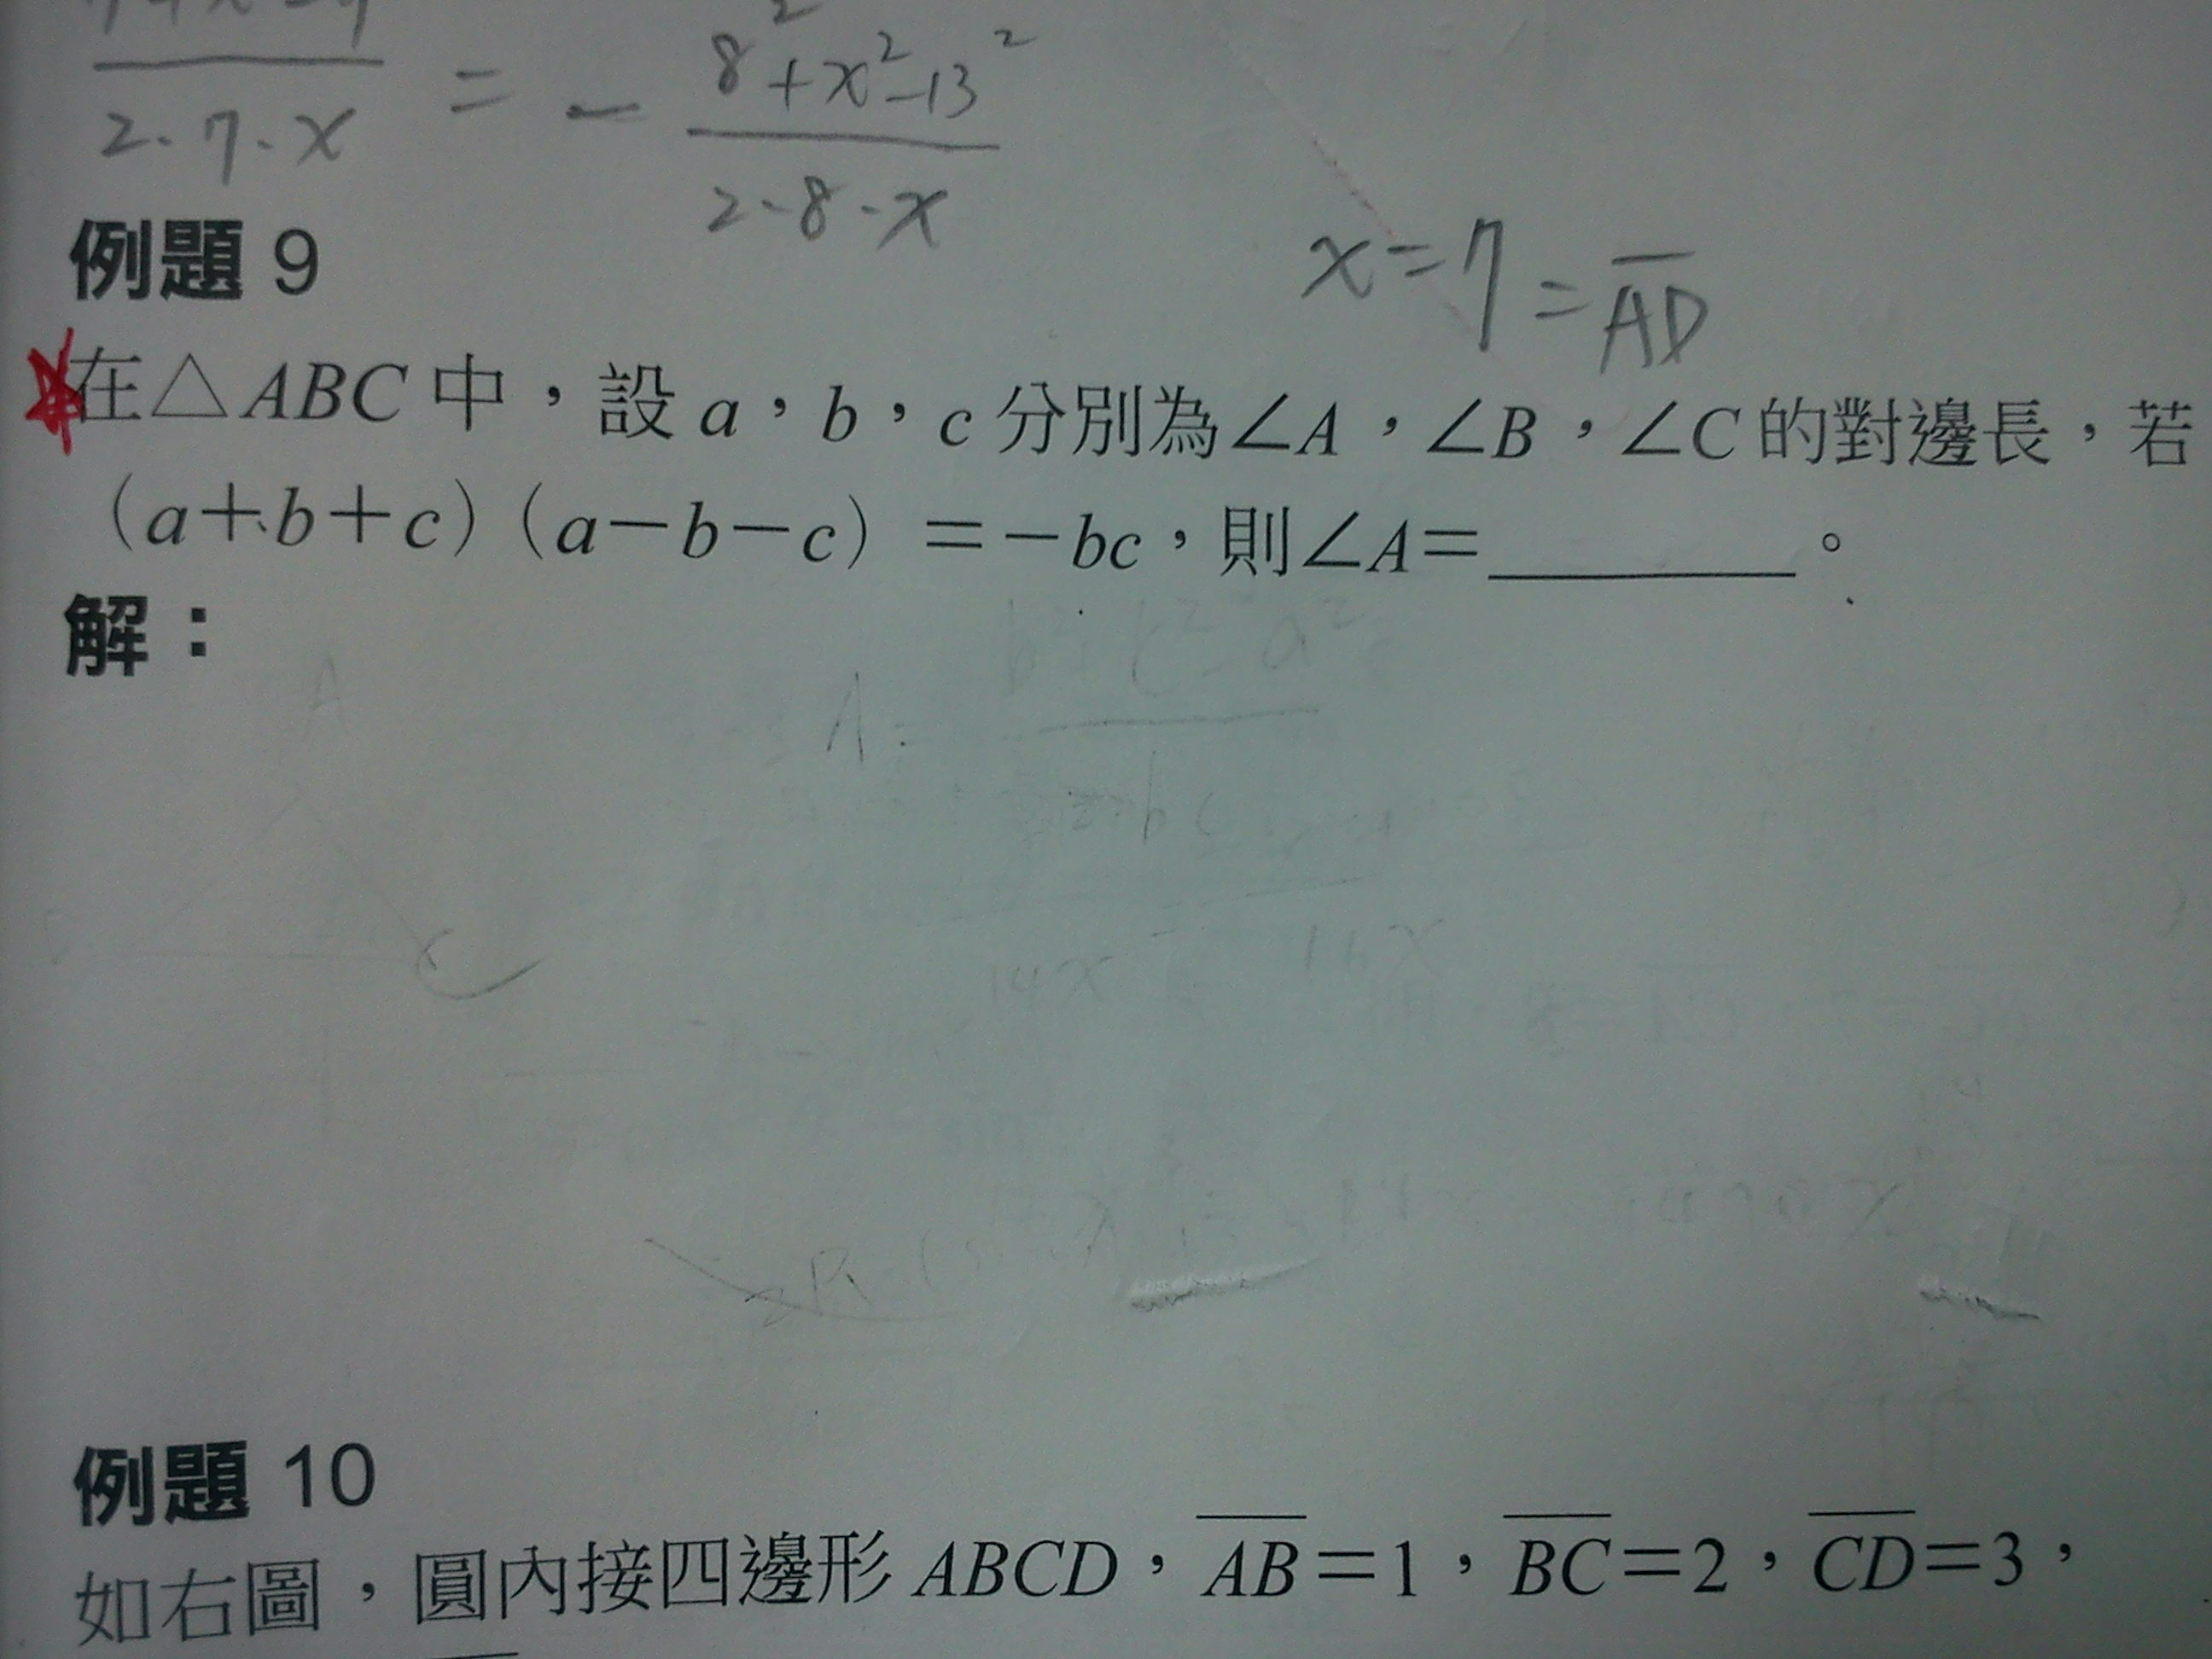 2·7·x = - 8²+x²-13² / 2·8·x
例題 9
x=7=A̅D̅
在△ABC 中，設 a，b，c 分別為∠A，∠B，∠C 的對邊長，若
（a＋b＋c）（a－b－c）＝－bc，則∠A＝________。
解：
A
A = b²+c²-a² / 2·bc
C
14x 11x
例題 10
如右圖，圓內接四邊形 ABCD，A̅B̅＝1，B̅C̅＝2，C̅D̅＝3，